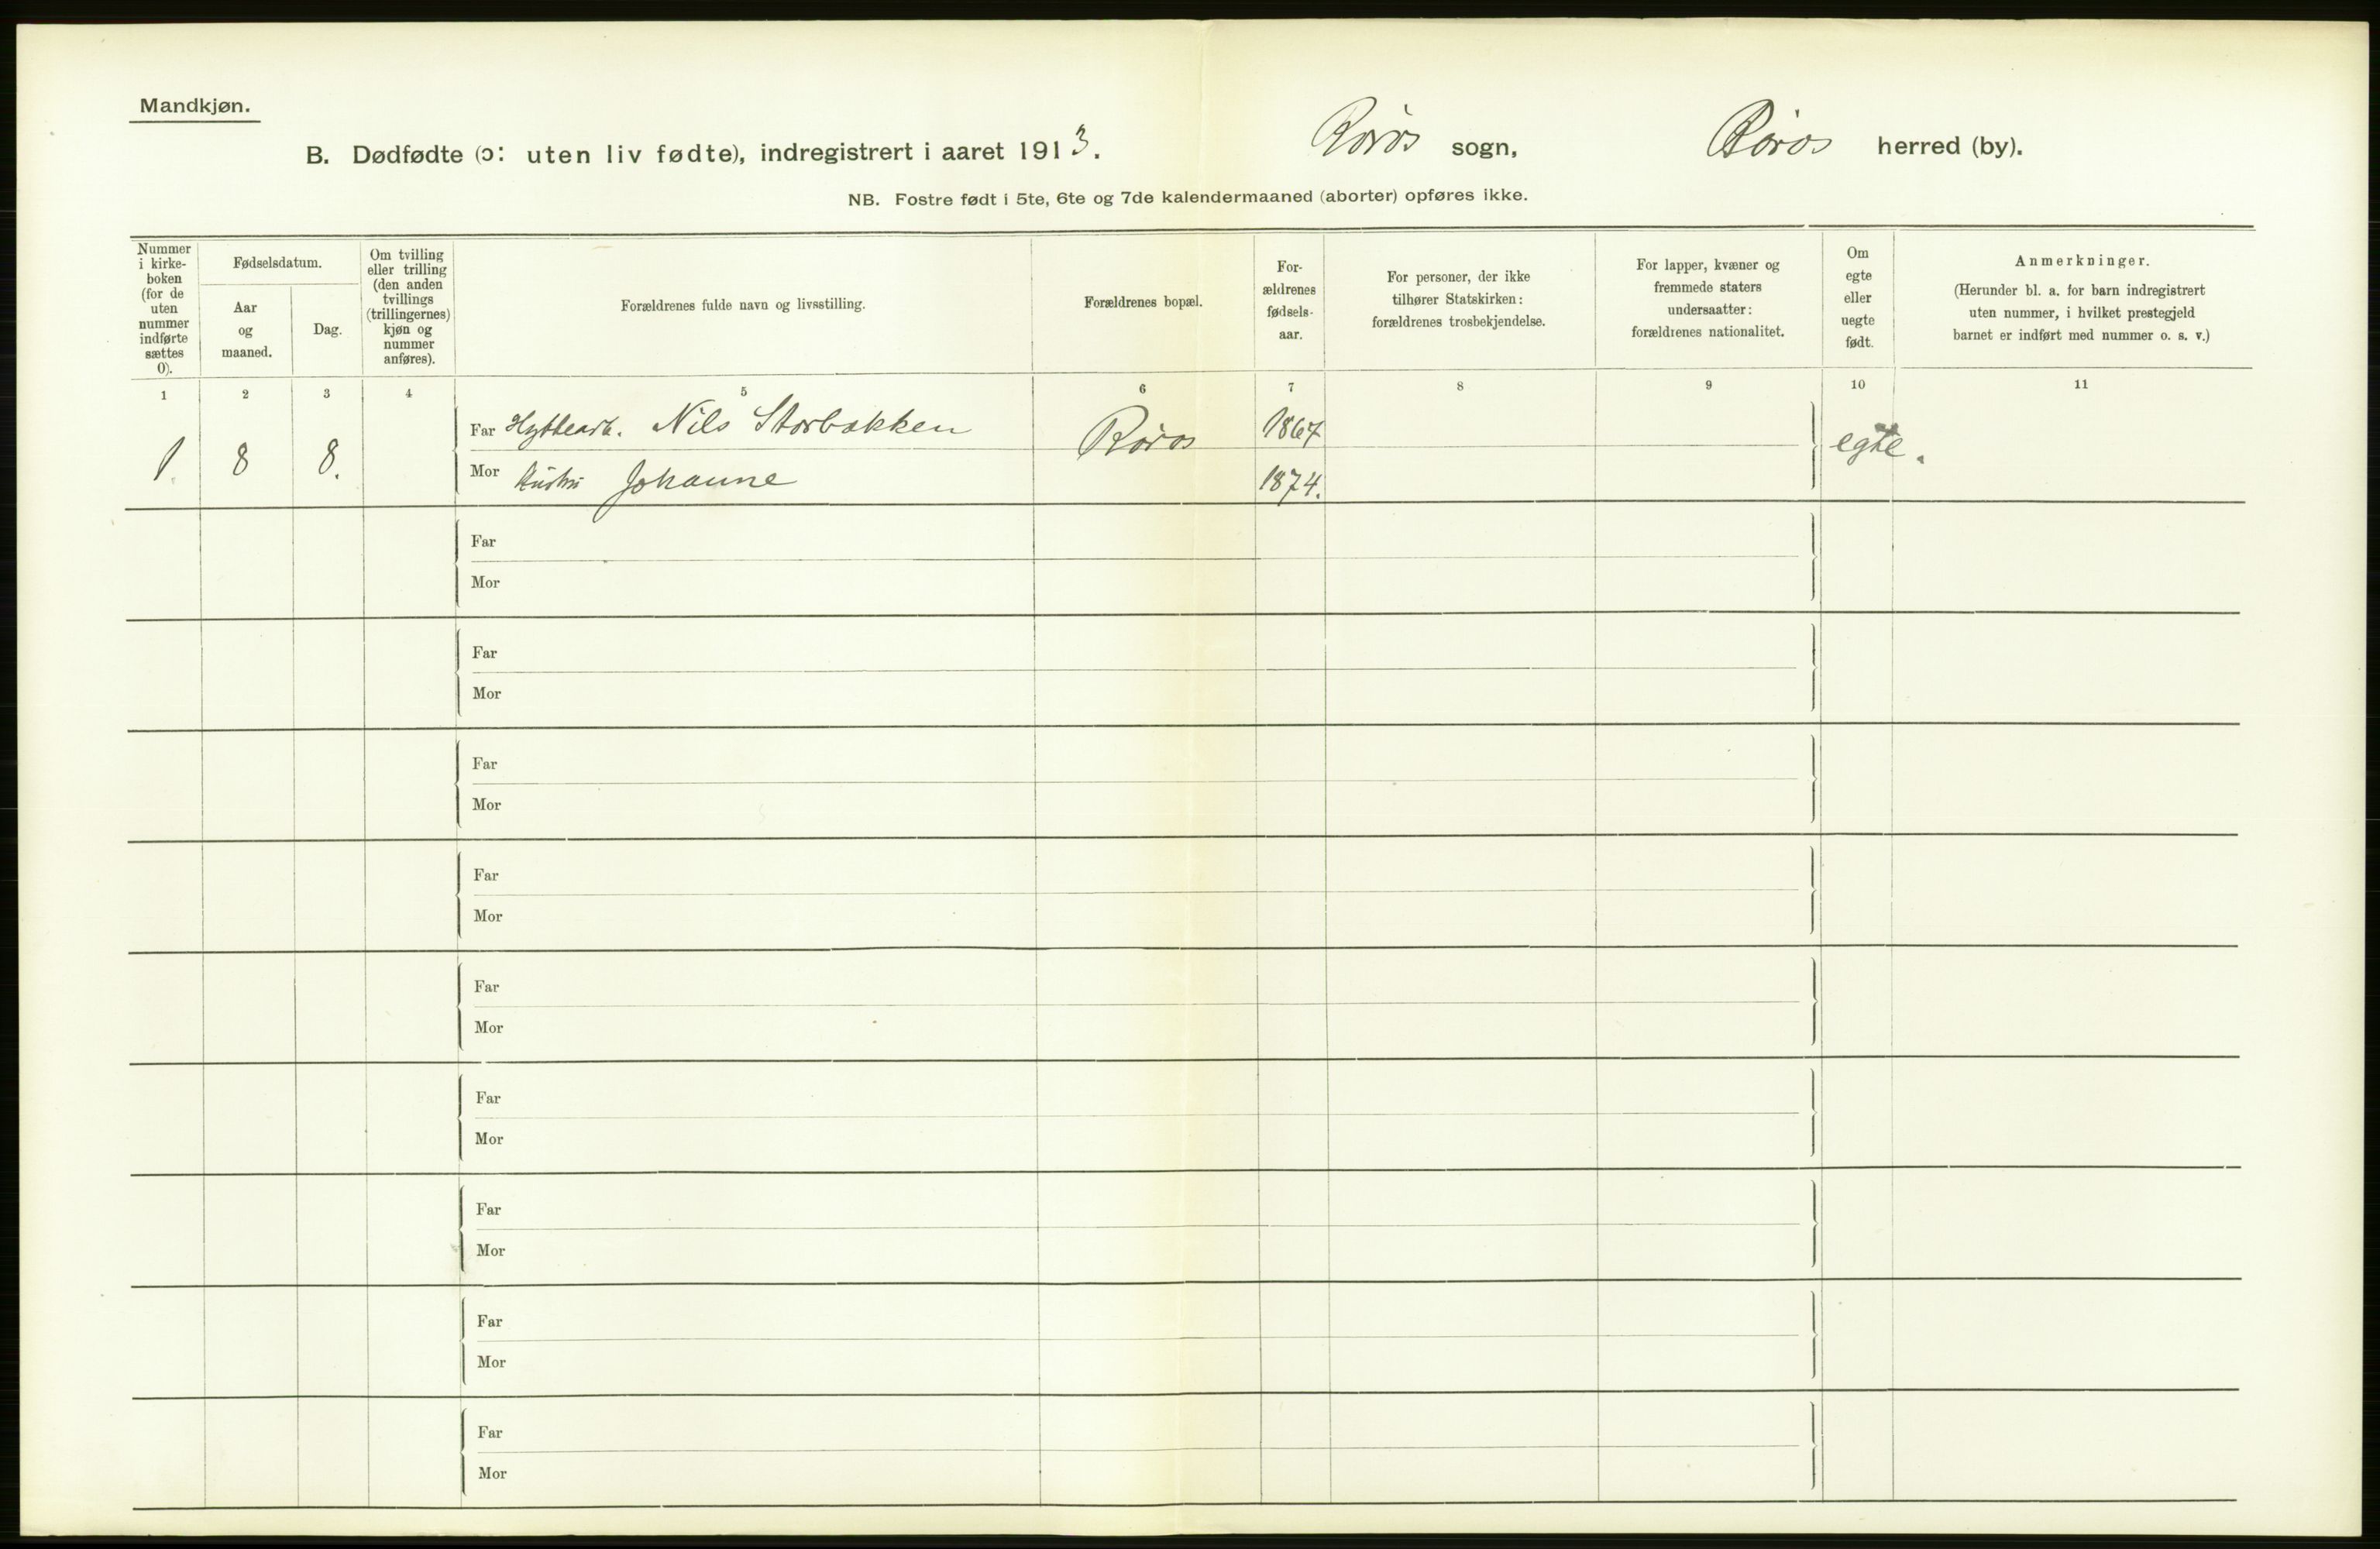 Mandkjøn.
B. Dødfødte (ɔ: uten liv fødte), indregistrert i aaret 1913. Røros sogn, Røros herred (by).
NB. Fostre født i 5te, 6te og 7de kalendermaaned (aborter) opføres ikke.
Nummer
i kirke-
boken
(for de
uten
nummer
indførte
sættes
0).
Fødselsdatum.
Aar
og
maaned.
Dag.
Om tvilling
eller trilling
(den anden
tvillings
(trillingernes)
kjøn og
nummer
anføres).
Forældrenes fulde navn og livsstilling.
Forældrenes bopæl.
For-
ældrenes
fødsels-
aar.
For personer, der ikke
tilhører Statskirken:
forældrenes trosbekjendelse.
For lapper, kvæner og
fremmede staters
undersaatter:
forældrenes nationalitet.
Om
egte
eller
uegte
født.
Anmerkninger.
(Herunder bl. a. for barn indregistrert
uten nummer, i hvilket prestegjeld
barnet er indført med nummer o. s. v.)
1 2 3 4 5 6 7 8 9 10 11
1. 8 8.
Far Hyttearb. Nils Storbakken Røros 1867 egte.
Mor Hustru Johanne 1874.
Far
Mor
Far
Mor
Far
Mor
Far
Mor
Far
Mor
Far
Mor
Far
Mor
Far
Mor
Far
Mor